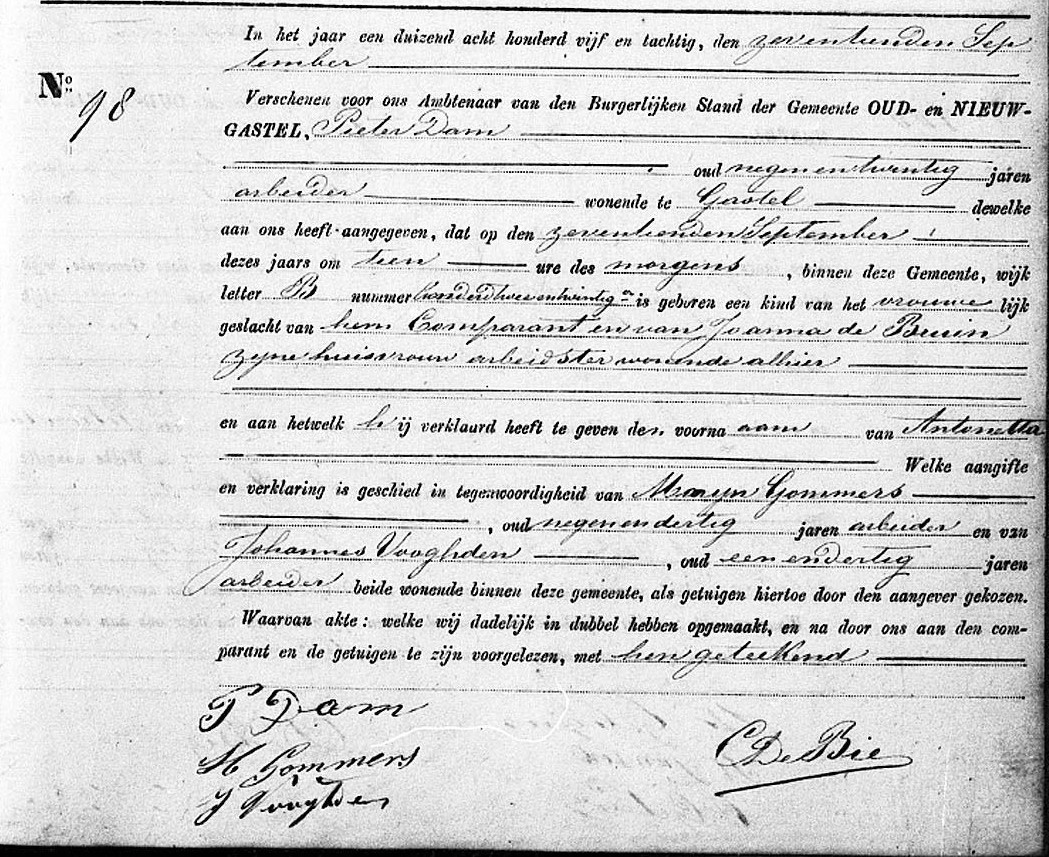 In het jaar een duizend acht honderd vijf en tachtig, den zeventienden Sep
tember
No. 98
Verschenen voor ons Ambtenaar van den Burgerlijken Stand der Gemeente OUD- en NIEUW-
GASTEL, Pieter Dam
oud negenentwintig jaren
arbeider wonende te Gastel dewelke
aan ons heeft aangegeven, dat op den zeventienden September
dezes jaars om tien ure des morgens, binnen deze Gemeente, wijk
letter B nummer honderdtweeentwintig a is geboren een kind van het vrouwe lijk
geslacht van hem Comparant en van Joanna de Bruin
zyne huisvrouw arbeidster wonende alhier
en aan hetwelk h ij verklaard heeft te geven den voorna aam van Antonetta
Welke aangifte
en verklaring is geschied in tegenwoordigheid van Maryn Gommers
, oud negenendertig jaren arbeider en van
Johannes Vooghden , oud eenendertig jaren
arbeider beide wonende binnen deze gemeente, als getuigen hiertoe door den aangever gekozen.
Waarvan akte: welke wij dadelijk in dubbel hebben opgemaakt, en na door ons aan den com-
parant en de getuigen te zijn voorgelezen, met hen geteekend
P Dam
M Gommers
C De Bie
J Vooghden